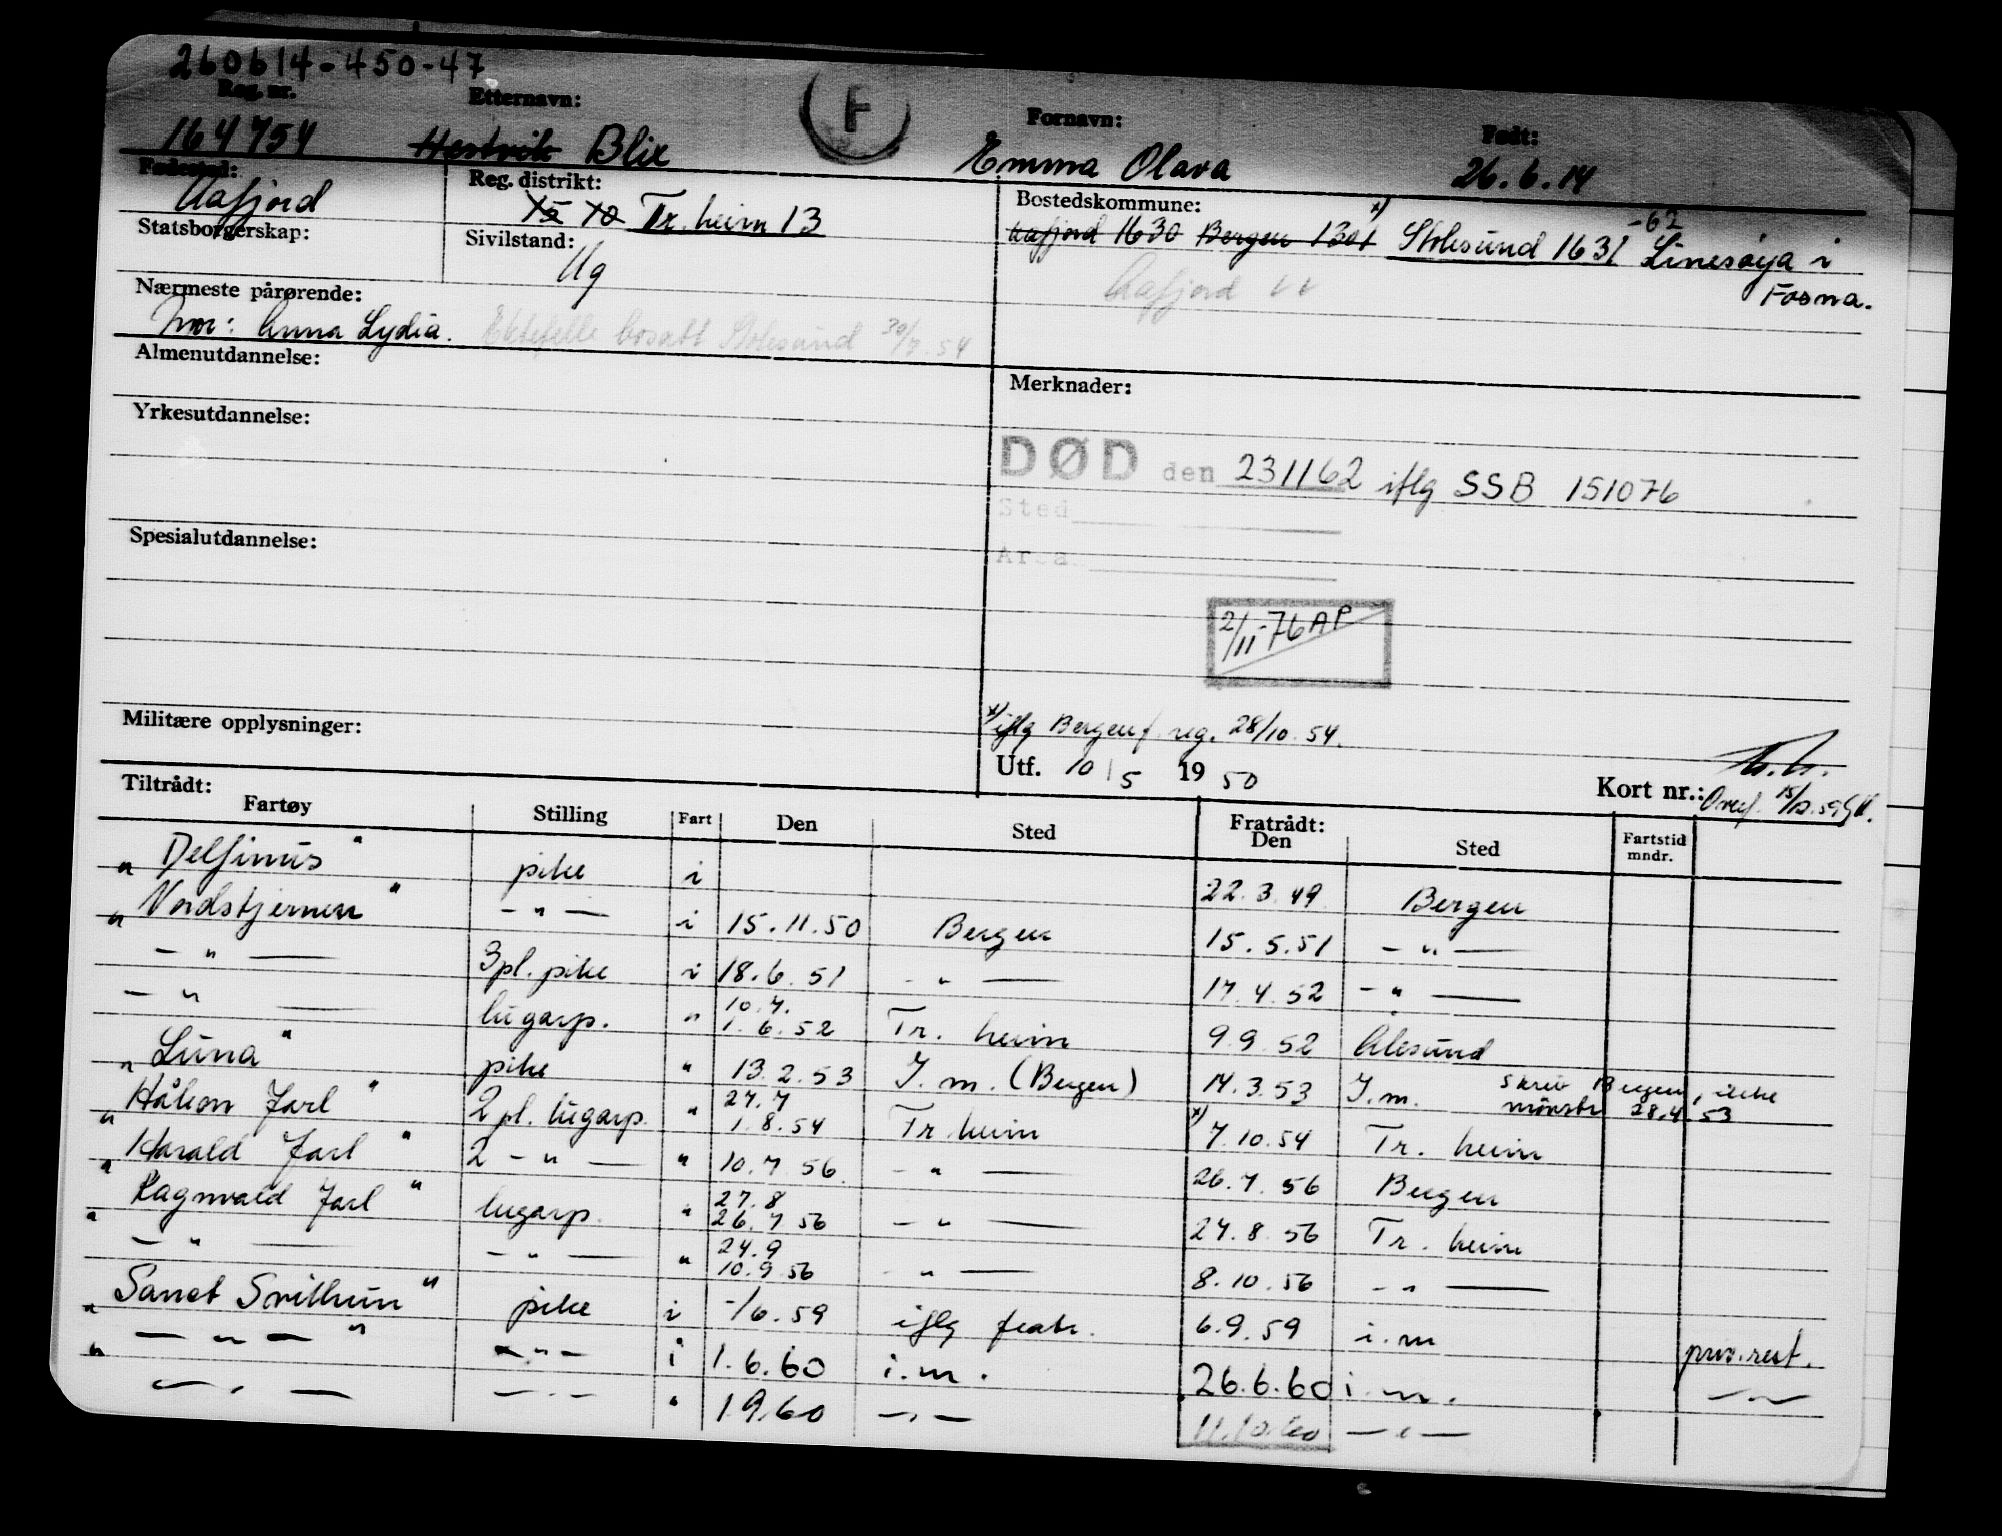 260614-450-47
Reg. nr. Etternavn: F Fornavn: Født:
164754 Hestvik Blix Emma Olava 26.6.14
Fødested: Reg. distrikt: Bostedskommune:
Aafjord 15 10 Tr.heim 13 Aafjord 1630 Bergen 1301 x) Stoksund 1631 -62 Linesøya i Fosna.
Statsborgerskap: Sivilstand:
Ug Aafjord
Nærmeste pårørende:
Mor: Anna Lydia. Ektefelle bosatt Stoksund 30/7.54
Almenutdannelse: Merknader:
Yrkesutdannelse:
DØD den 231162 iflg SSB 151076
Sted
Spesialutdannelse:
2/11-76 AP
Militære opplysninger: x) iflg Bergen f. reg. 28/10.54.
Utf. 10/5 1950 Kort nr.: Overf. 15/12.59
Tiltrådt: Fratrådt:
Fartøy Stilling Fart Den Sted Den Sted Fartstid mndr.
"Delfinus" pike i 22.3.49 Bergen
"Nordstjernen" -"- i 15.11.50 Bergen 15.5.51 -"-
-"- 3pl. pike i 18.6.51 -"- 17.4.52 -"-
-"- lugarp. " 10.7. 1.6.52 Tr. heim 9.9.52 Ålesund
"Luna" pike " 13.2.53 I.m. (Bergen) 14.3.53 I.m. skriv Bergen, ikke mønstr 28.4.53
"Håkon Jarl" 2pl. lugarp. " 27.7 1.8.54 Tr heim x) 7.10.54 Tr. heim
"Harald Jarl" 2 -"- " 10.7.56. -"- 26.7.56 Bergen
"Ragnvald Jarl" lugarp. " 27.8 26.7.56 -"- 27.8.56 Tr. heim
-"- -"- " 24.9 10.9.56 -"- 8.10.56 -"-
"Sanct Svithun" pike i -/6.59 iflg fratr. 6.9.59 i.m priv.rest.
"-"-" -"- i 1.6.60 i.m. 26.6.60 i.m. -"-
-"- -"- " 1.9.60 -"- 11.10.60 -"-